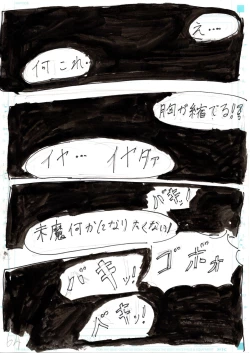 え…
何これ…
胸が縮でる!?
イヤ… イヤダァ
バキッ!
末魔何かになりたくない!
ゴボォ
バキッ!
バキッ!